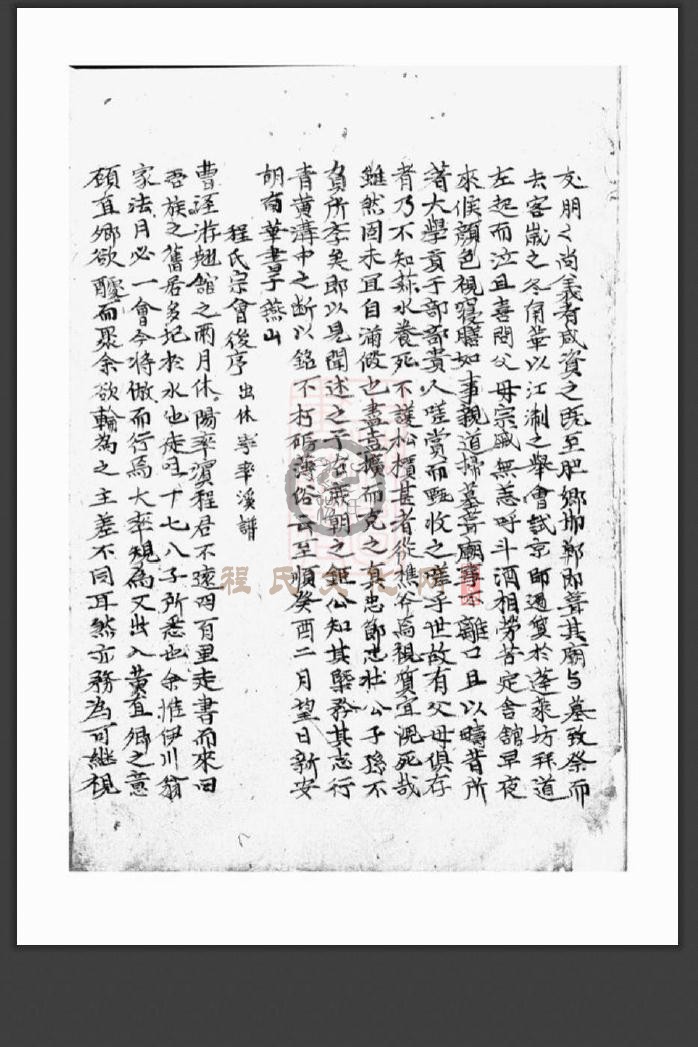 友朋之尚義者咸資之既至肥鄉邯鄲即葺其廟与墓致祭而
去客歲之冬甬華以江淛之舉會試京師遇叟於蓬萊坊拜道
左起而泣且喜問父母宗戚無恙呼斗酒相勞苦定舍館早夜
來候顏色視寢膳如事親道掃墓葺廟事不離口且以疇昔所
著大學 于部部 人 賞而甄收之嗟乎世故有父母俱存
者乃不知菽水養死不護松檟甚者從樵谷焉視 宜愧死哉
雖然固未宜自滿假也盡吾擴而充之真忠節忠壯公子孫不
負所李矣郎以見聞述之于右我朝之鉅公知其 其志行
青黃溝中之断以銘不朽 薄俗云至順癸酉二月望日新安
胡南華書于燕山
程氏宗會後序 出休寧率溪譜
曹涇游翹舘之兩月休陽率濵程君不遠四百里走書而來曰
吾族之舊居多圮於水也徒 十七八子所悉也余惟伊川翁
家法月必一會今将倣而行焉大率規為又出入黃直鄉之意
顧直鄉欲醵而聚余欲輪為之主差不同耳然亦務為可継視
程氏文化网